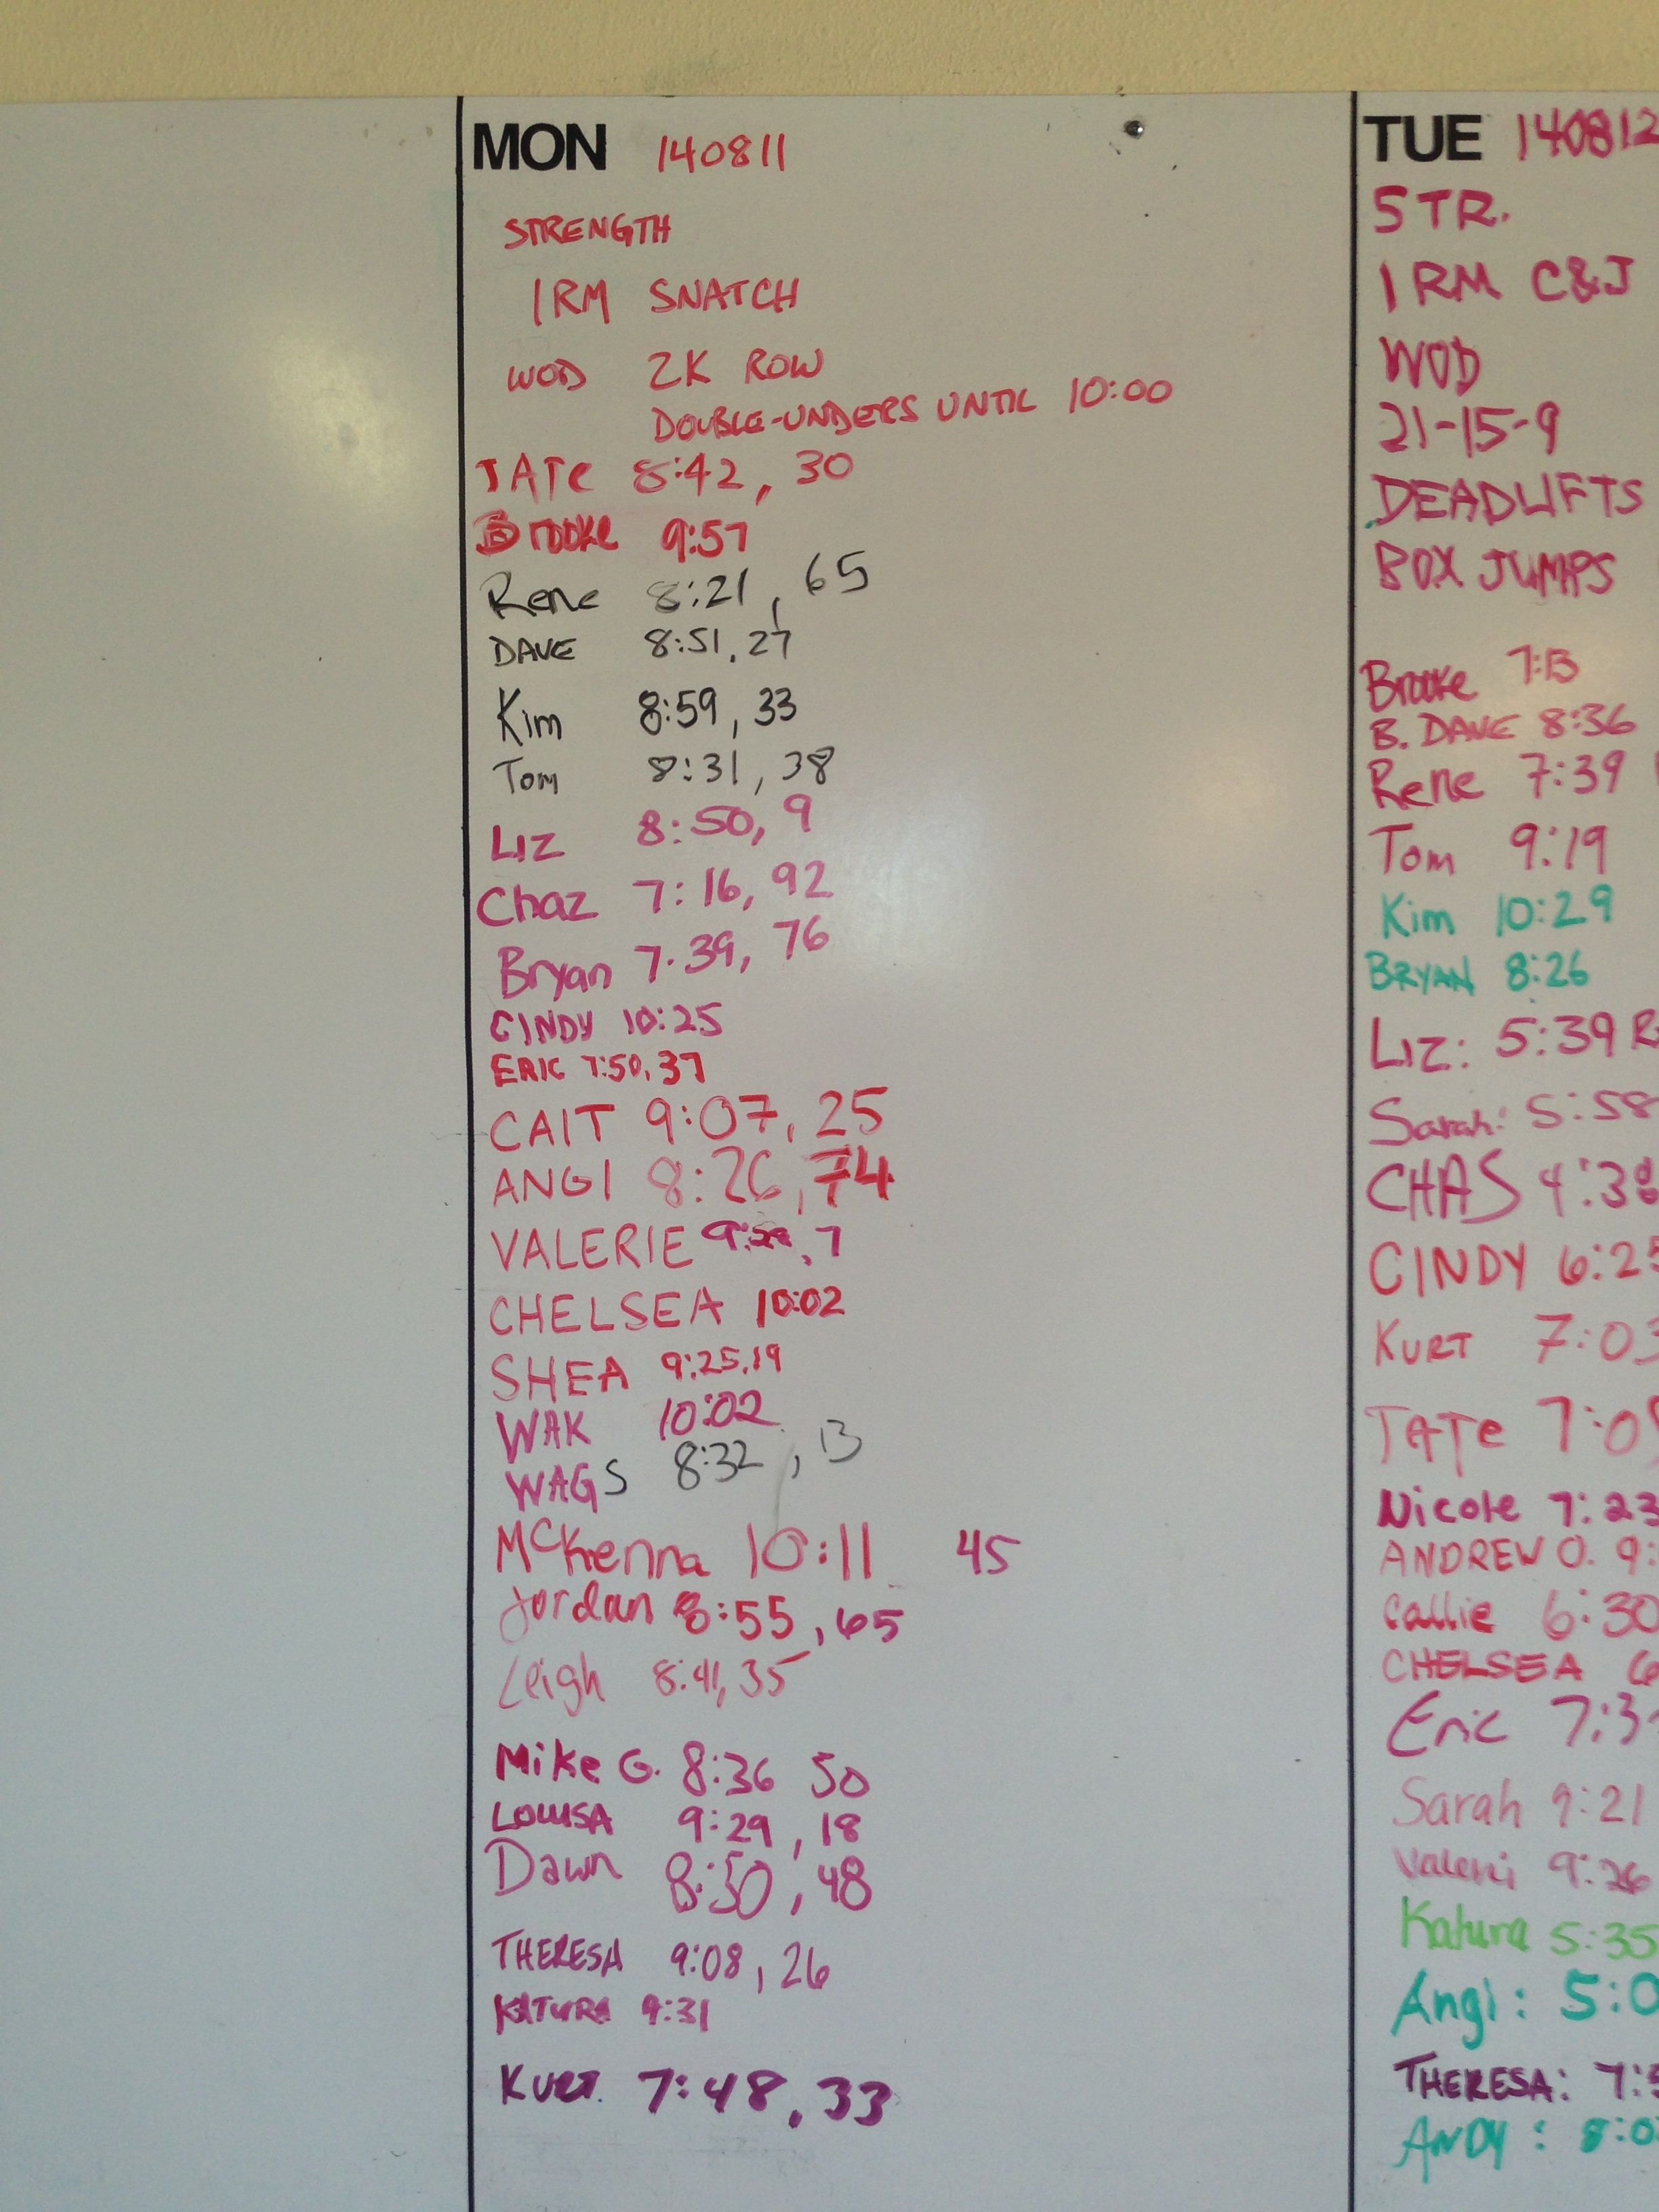 MON 140811
STRENGTH
1RM SNATCH
WOD 2K ROW
DOUBLE-UNDERS UNTIL 10:00
TATe 8:42, 30
Brooke 9:57
Rene 8:21, 65
DAVE 8:51, 27
Kim 8:59, 33
Tom 8:31, 38
LIZ 8:50, 9
Chaz 7:16, 92
Bryan 7:39, 76
CINDY 10:25
ERIC 7:50, 37
CAIT 9:07, 25
ANGI 8:26, 74
VALERIE , 7
CHELSEA 10:02
SHEA 9:25, 19
WAK 10:02
WAGS 8:32, 13
McKenna 10:11 45
Jordan 8:55, 65
Leigh 8:41, 35
Mike G. 8:36 50
LOUISA 9:29, 18
Dawn 8:50, 48
THERESA 9:08, 26
KATURA 9:31
KURT. 7:48, 33
TUE 140812
STR.
1RM C&J
WOD
21-15-9
DEADLIFTS
BOX JUMPS
Brooke 7:13
B. DAVE 8:36
Rene 7:39
Tom 9:19
Kim 10:29
BRYAN 8:26
LIZ: 5:39
Sarah: 5:58
CHAS 4:38
CINDY 6:25
KURT 7:03
TATe 7:0
Nicole 7:23
ANDREW O. 9:
Callie 6:30
CHELSEA 6
Eric 7:3
Sarah 9:21
Valeri 9:26
Katura 5:35
Angi: 5:0
THERESA: 7:5
ANDY: 8:0